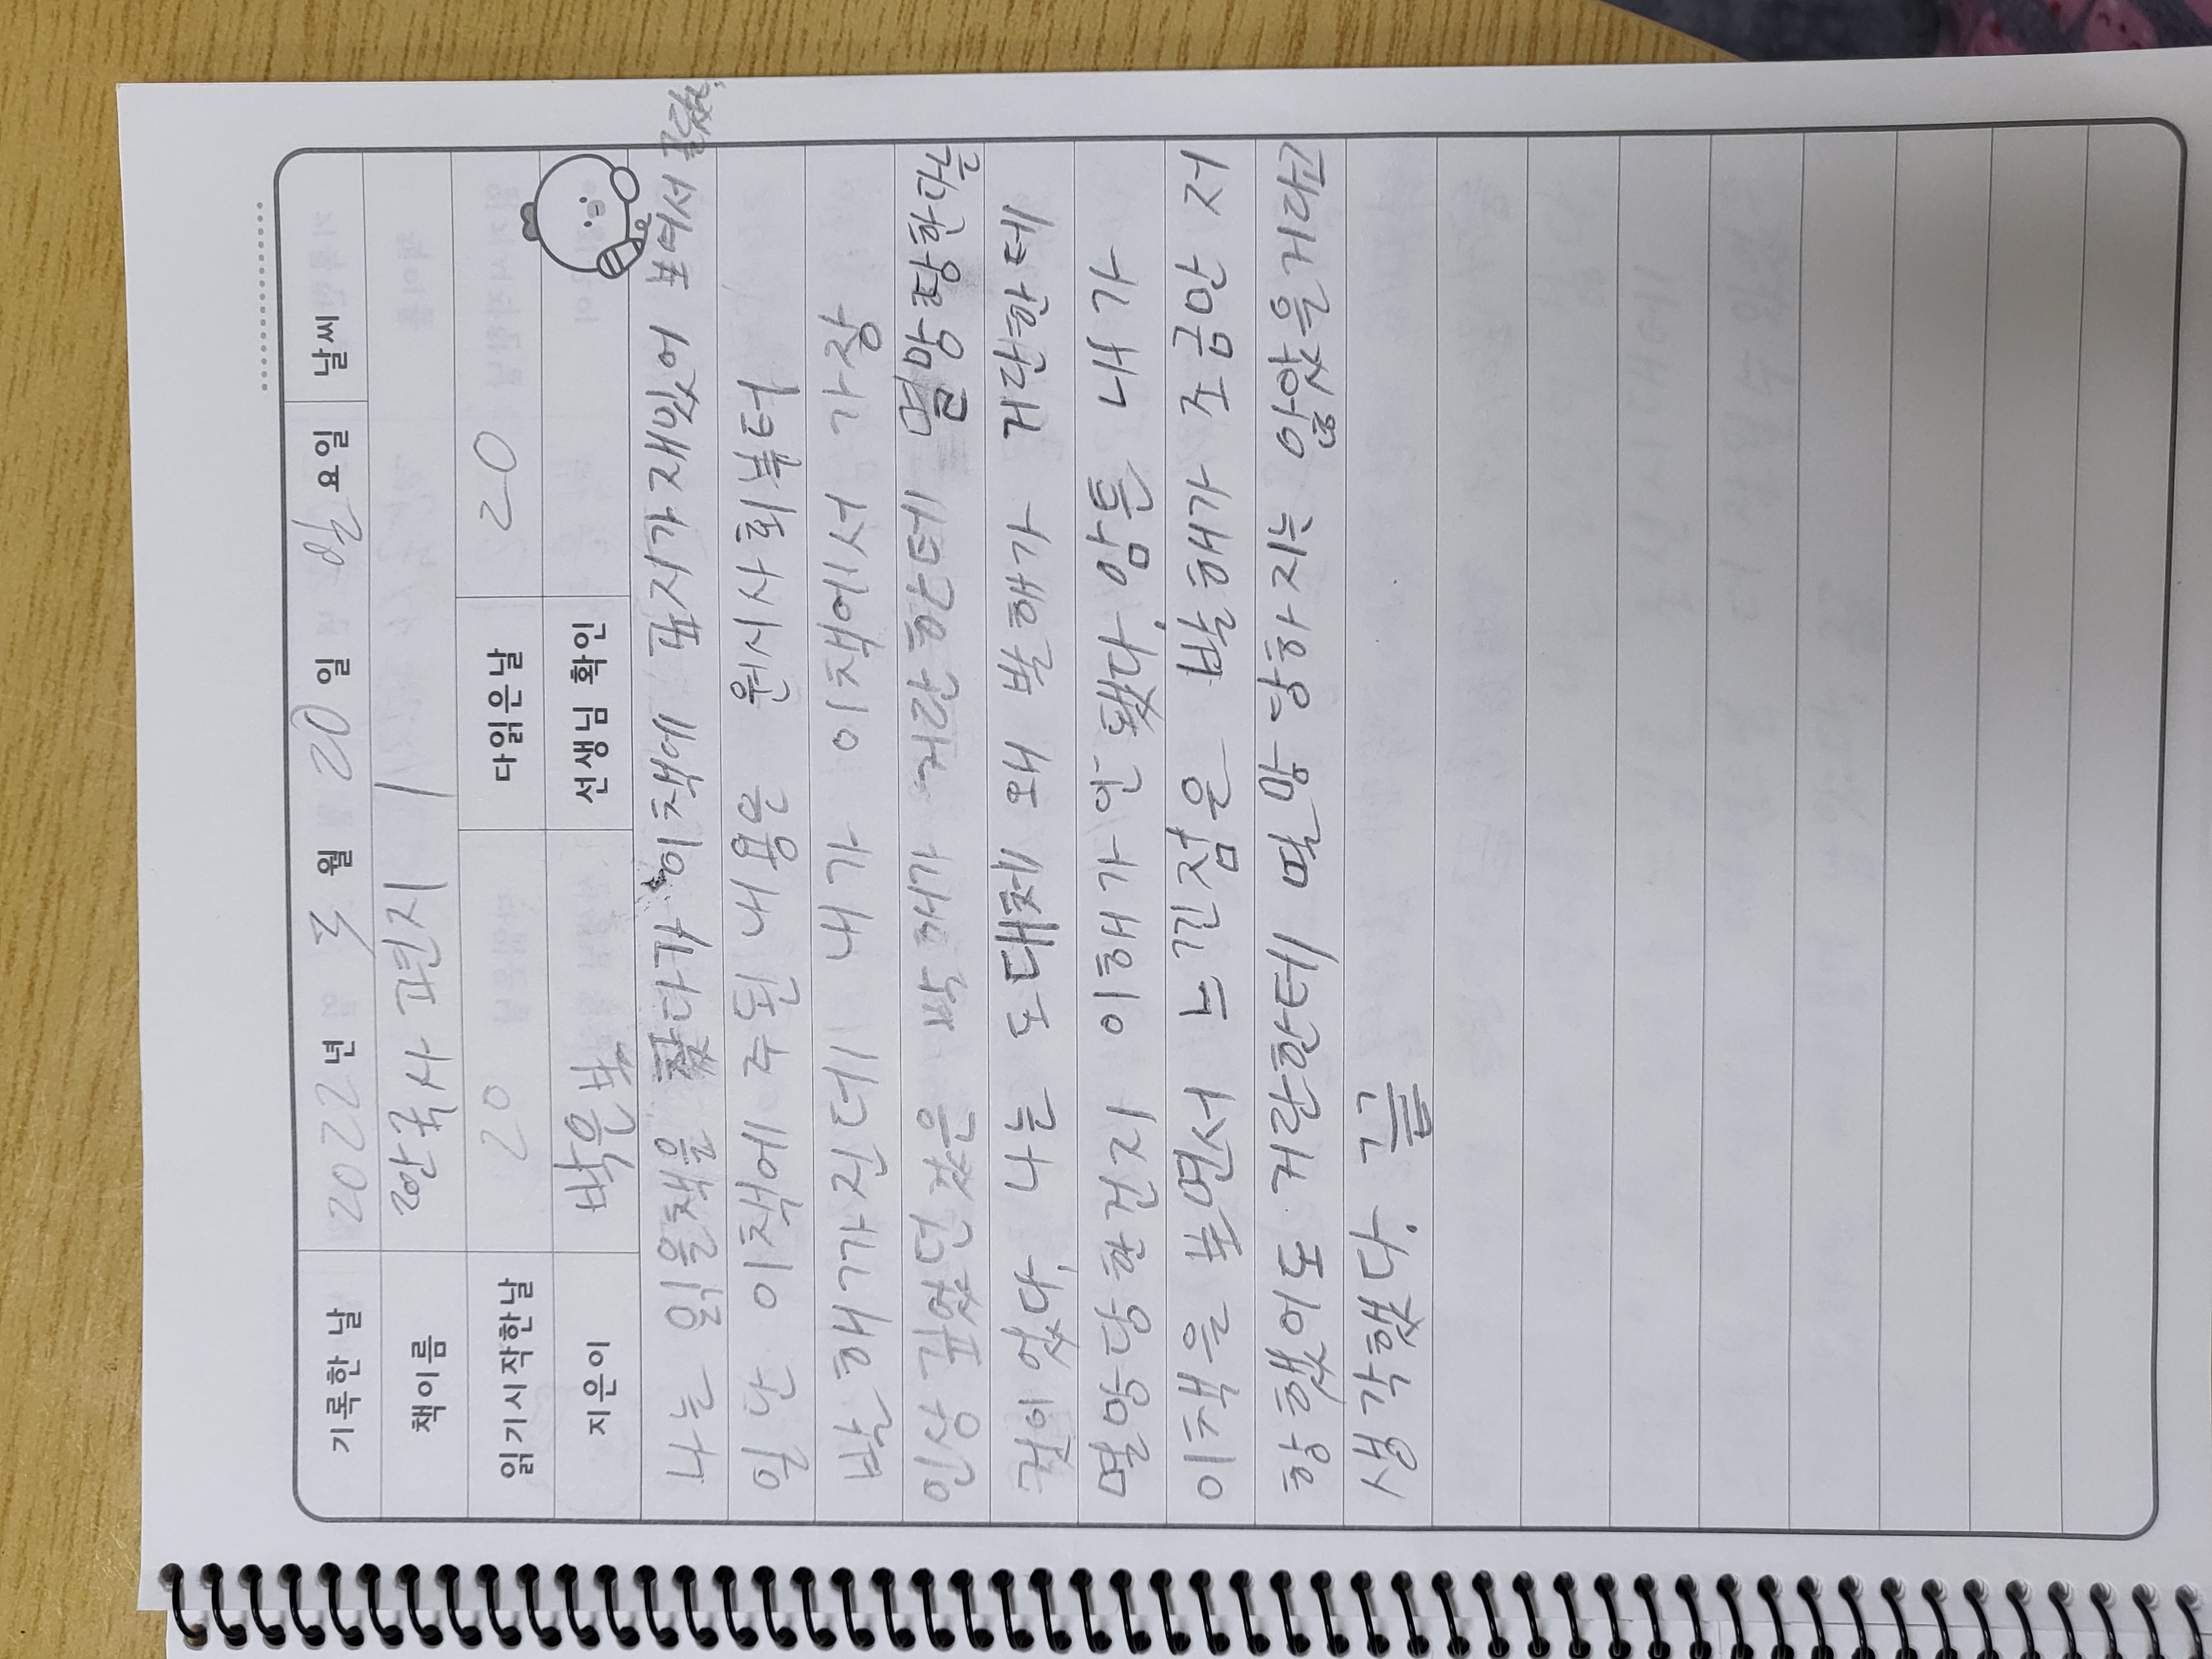 기록한 날 2022년 3월 20일 일요일 날씨
책이름 한국사 편지 1
읽기시작한날 20 다읽은날 20
지은이 박은봉 선생님 확인
나는 읽을책을 찾다가 이책에 표지가 재밌어 보여서 골랐다.
일단 이책에 주된 내용은 원시사회부터
발해까진데 내가 이책에서 가장
인상 깊었던 것은 발해가 거란한테 멸망당한다는
것이 었다. 나는 도대체 왜 발해가 거란한테
멸망당한건지 이해가 안 됐다. 암튼 내가
이책을 보면서 느낀점은 발해가 조금만 저
항했어도 거란한테 멸망당하지는 않았을거라고
생각했다. 끝